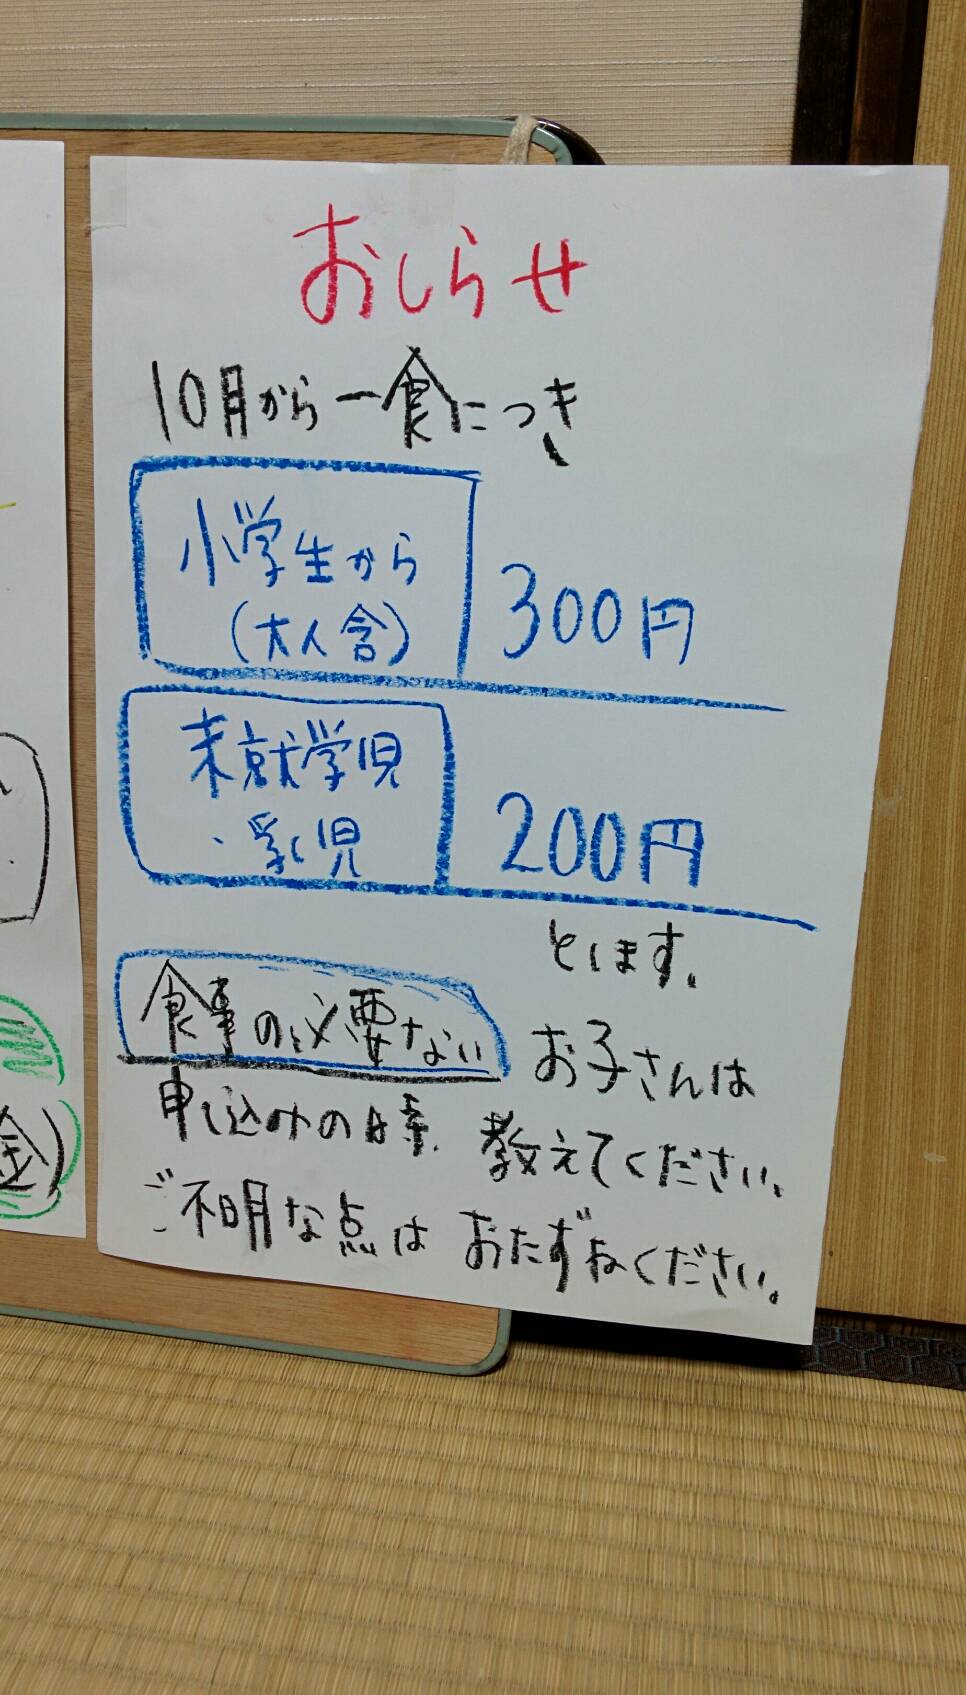 おしらせ
10月から一食につき
小学生から
(大人含)
300円
未就学児
・乳児
200円
とします。
食事の必要ない お子さんは
申し込みの時、教えてください。
ご不明な点は おたずねください。
金)